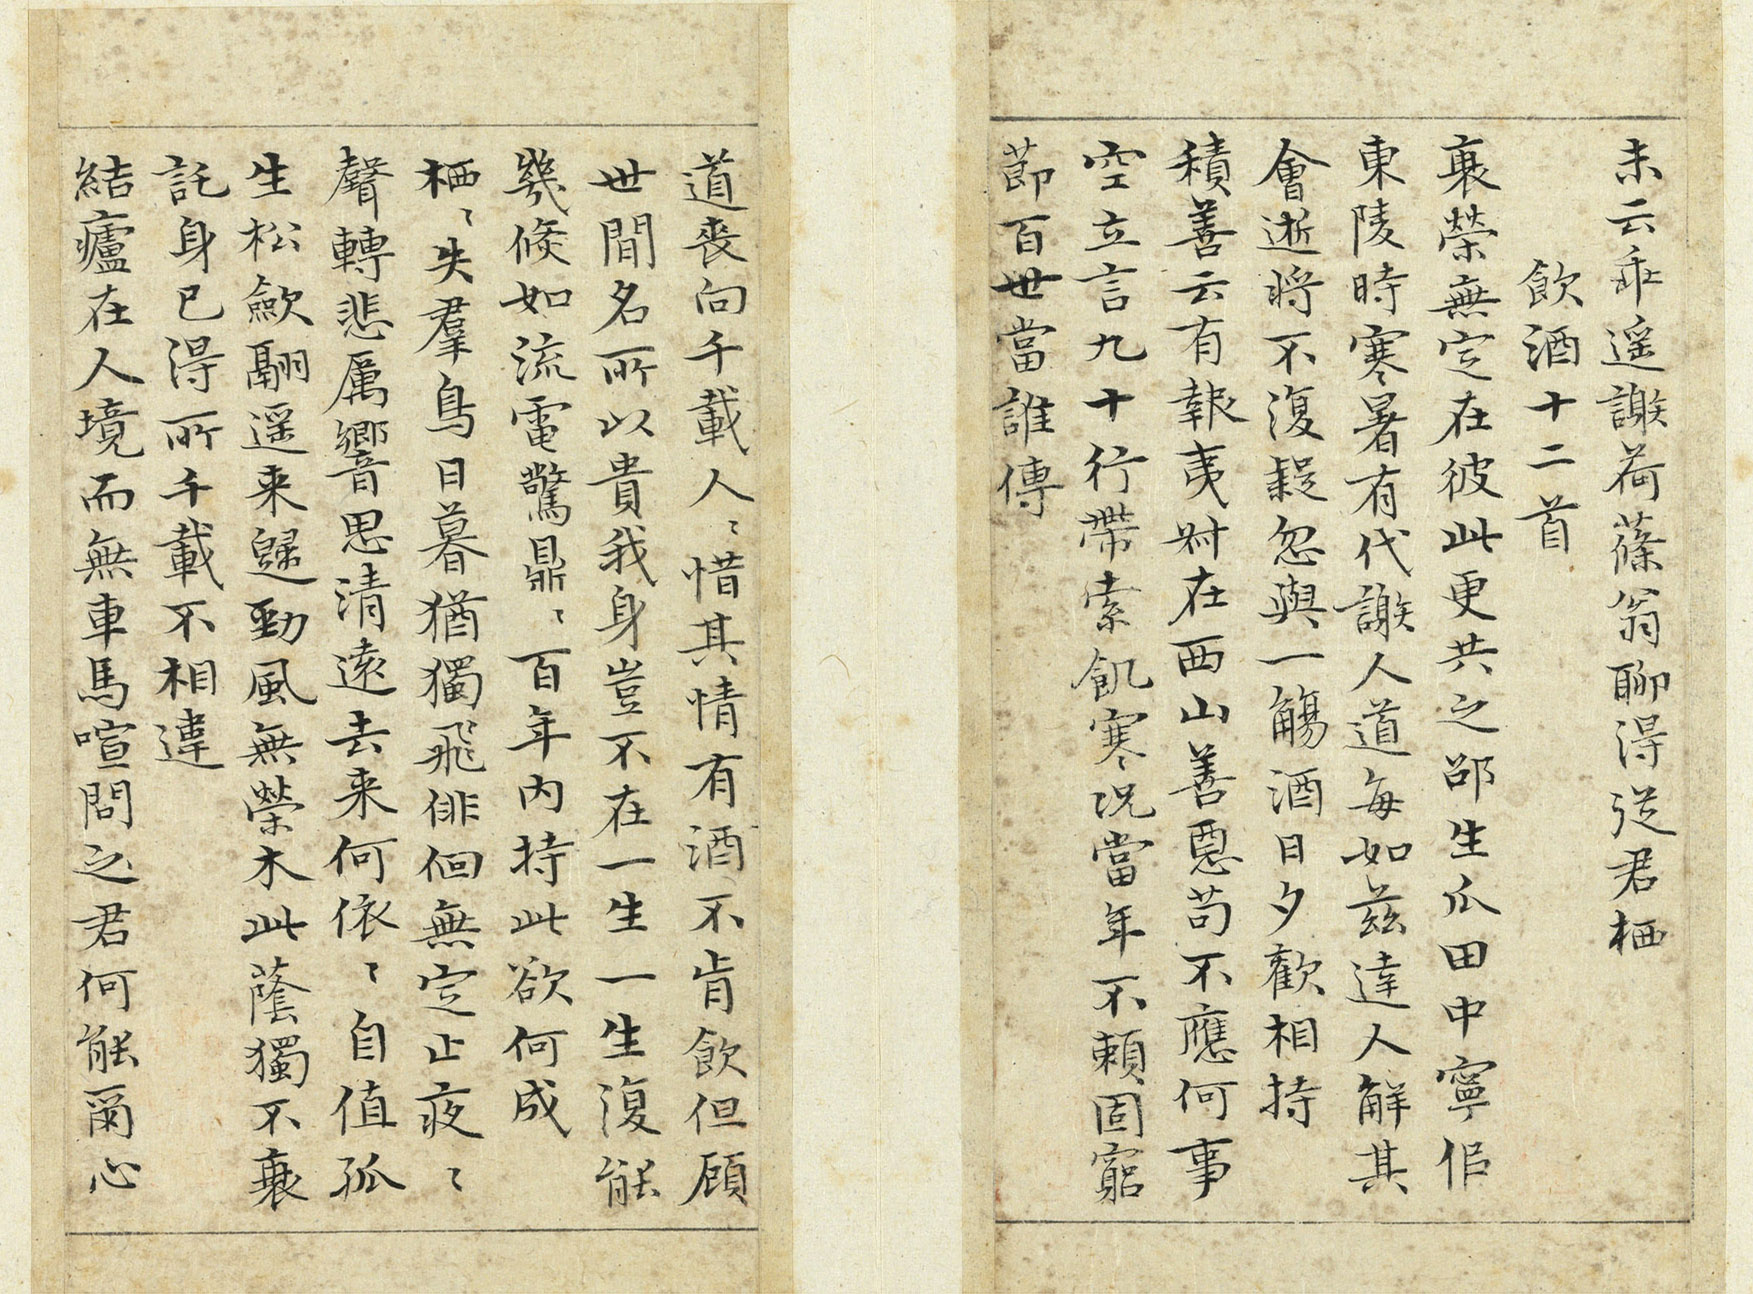 未云乖遥謝荷蓧翁聊得從君栖
飲酒十二首
衰榮無定在彼此更共之邵生瓜田中寧似
東陵時寒暑有代謝人道每如茲達人解其
會逝將不復疑忽與一觴酒日夕歡相持
積善云有報夷叔在西山善惡苟不應何事
空立言九十行帶索飢寒況當年不賴固窮
節百世當誰傳
道喪向千載人〻惜其情有酒不肯飲但顧
世間名所以貴我身豈不在一生一生復能
幾倏如流電驚鼎〻百年內持此欲何成
栖〻失羣鳥日暮猶獨飛俳佪無定止夜〻
聲轉悲厲響思清遠去来何依〻自值孤
生松歛翮遥来歸勁風無榮木此蔭獨不衰
託身已得所千載不相違
結廬在人境而無車馬喧問之君何能爾心